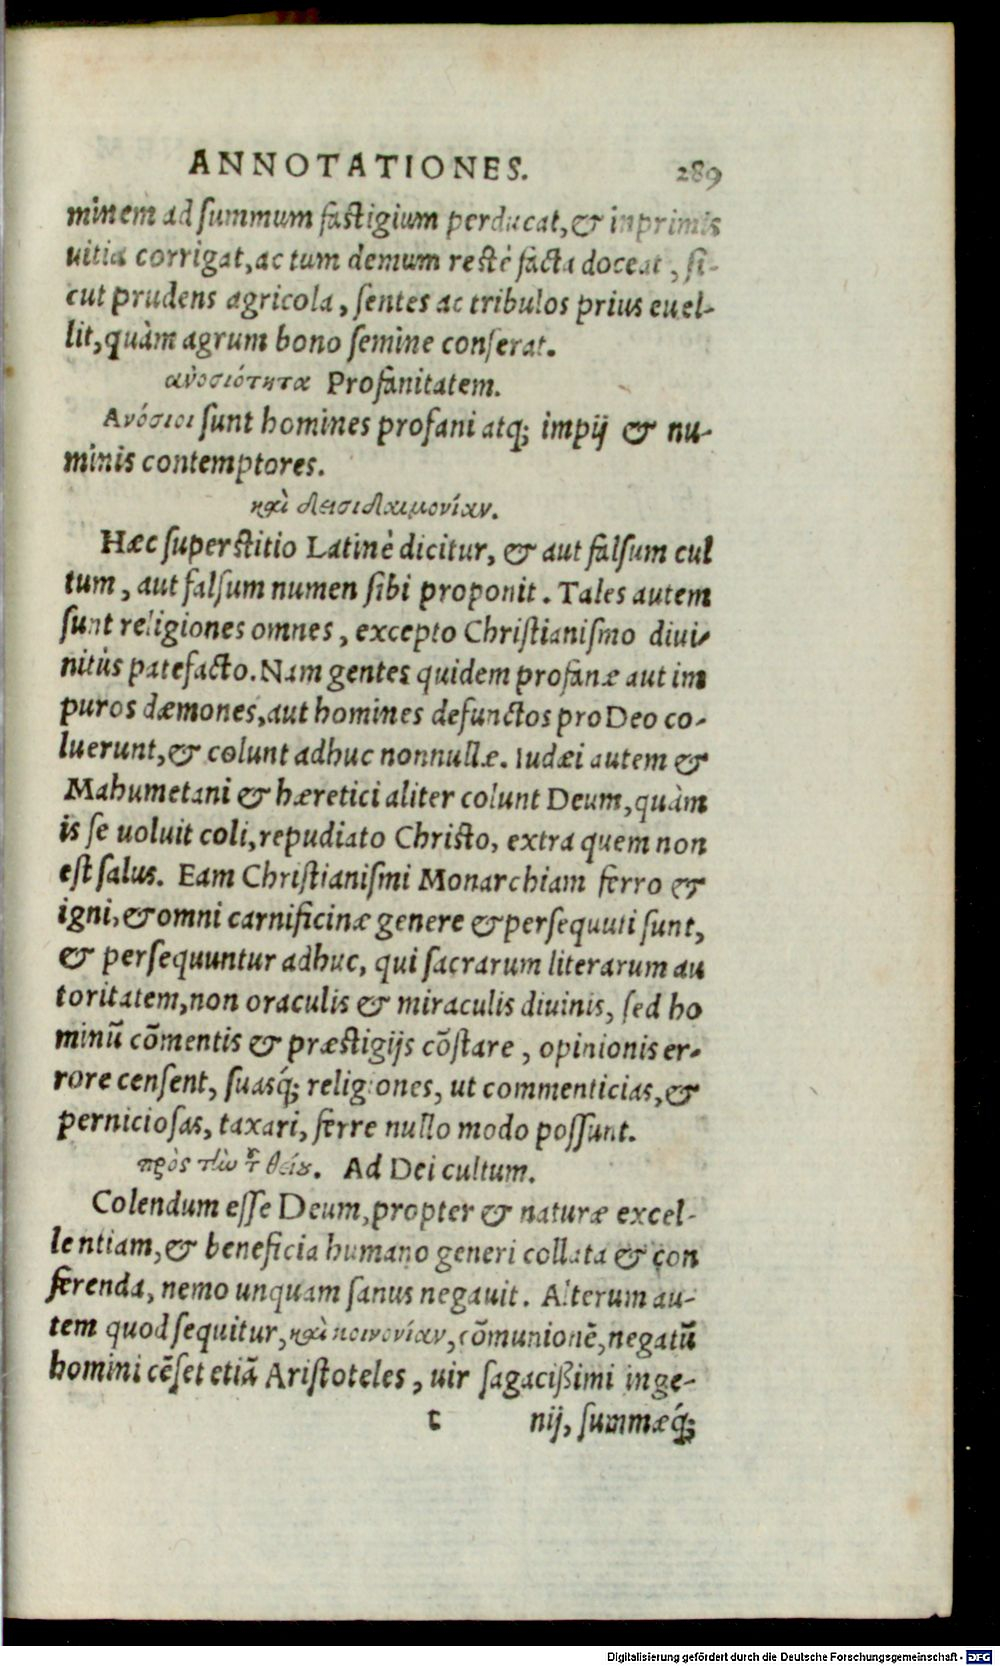 ANNOTATIONES. 289
minem ad summum fastigium perducat, & inprimis
uitia corrigat, ac tum demum rectè facta doceat, si-
cut prudens agricola, sentes ac tribulos prius euel-
lit, quàm agrum bono semine conserat.
ἀνοσιότητα Profanitatem.
Ανόσιοι sunt homines profani atq; impij & nu-
minis contemptores.
καὶ δεισιδαιμονίαν.
Hæc superstitio Latinè dicitur, & aut falsum cul
tum, aut falsum numen sibi proponit. Tales autem
sunt religiones omnes, excepto Christianismo diui-
nitùs patefacto. Nam gentes quidem profanæ aut im
puros dæmones, aut homines defunctos pro Deo co-
luerunt, & colunt adhuc nonnullæ. Iudæi autem &
Mahumetani & hæretici aliter colunt Deum, quàm
is se uoluit coli, repudiato Christo, extra quem non
est salus. Eam Christianismi Monarchiam ferro &
igni, & omni carnificinæ genere & persequuti sunt,
& persequuntur adhuc, qui sacrarum literarum au
toritatem, non oraculis & miraculis diuinis, sed ho
minũ cõmentis & præstigijs cõstare, opinionis er-
rore censent, suasq́; religiones, ut commenticias, &
perniciosas, taxari, ferre nullo modo possunt.
πρὸς τὴν τοῦ θείου. Ad Dei cultum.
Colendum esse Deum, propter & naturæ excel-
lentiam, & beneficia humano generi collata & con
ferenda, nemo unquam sanus negauit. Alterum au-
tem quod sequitur, καὶ κοινονίαν, cõmunionẽ, negatũ
homini cẽset etiã Aristoteles, uir sagacißimi inge-
t nij, summæq́;
Digitalisierung gefördert durch die Deutsche Forschungsgemeinschaft - DFG